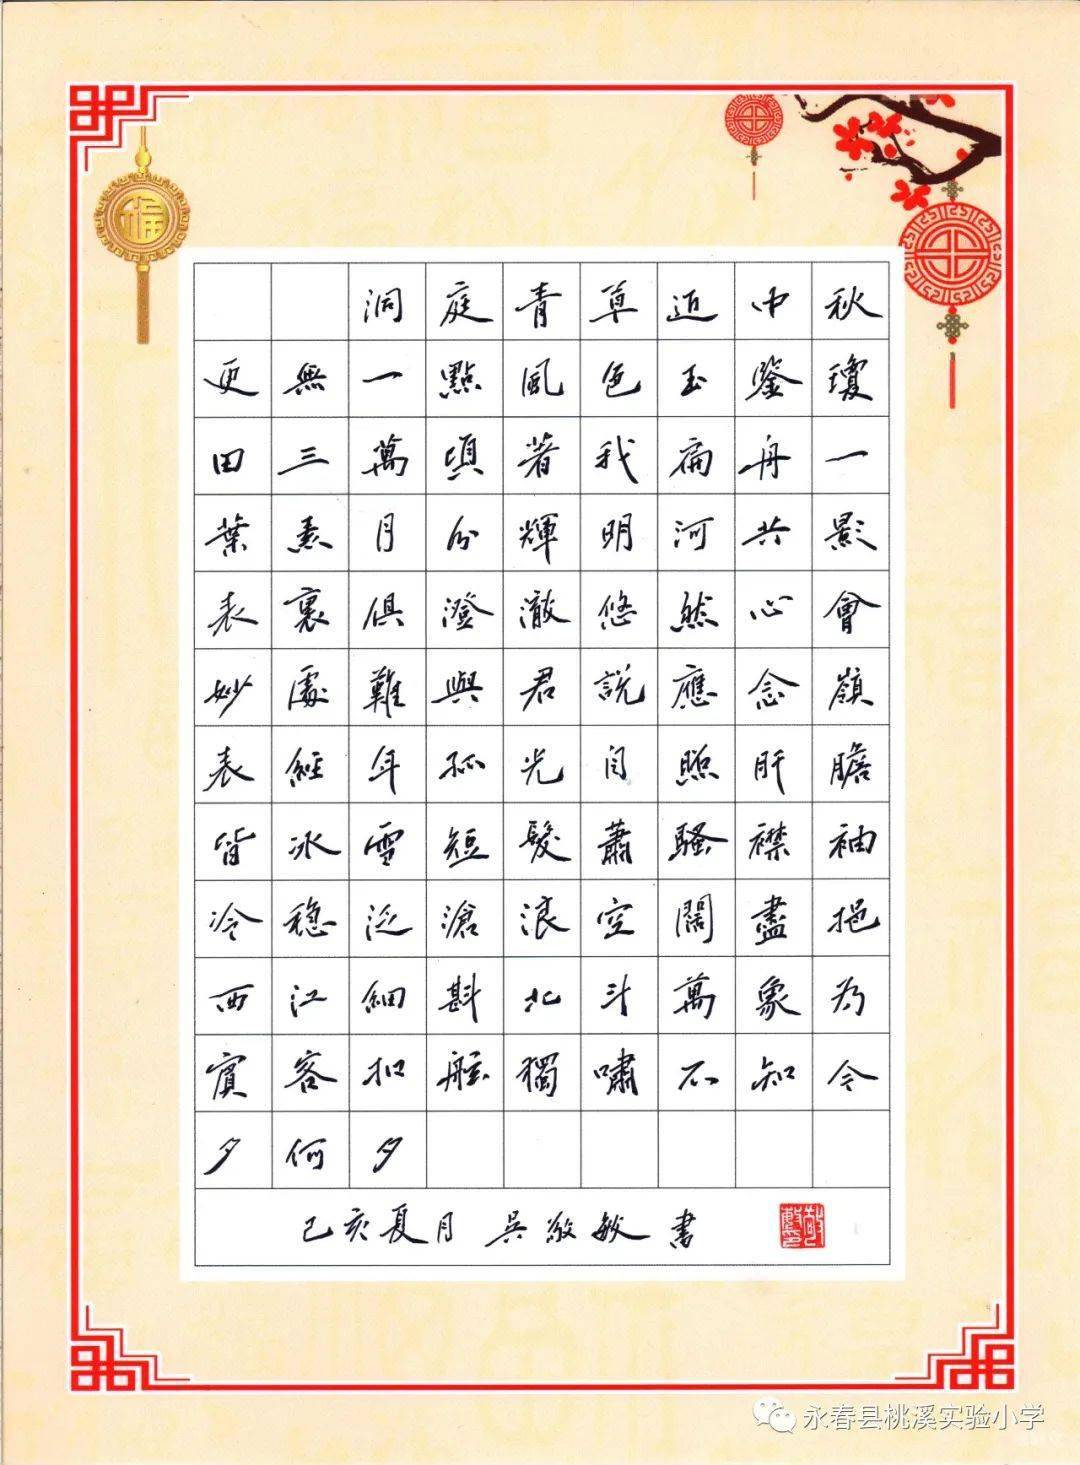 福
洞庭青草近中秋
更無一點風色玉鑒瓊
田三萬頃著我扁舟一
葉素月分輝明河共影
表裏俱澄澈悠然心會
妙處難與君說應念嶺
表經年孤光自照肝膽
皆冰雪短髮蕭騷襟袖
冷穩泛滄浪空闊盡挹
西江細斟北斗萬象為
賓客扣舷獨嘯不知今
夕何夕
己亥夏月 吳敬敏書
永春县桃溪实验小学